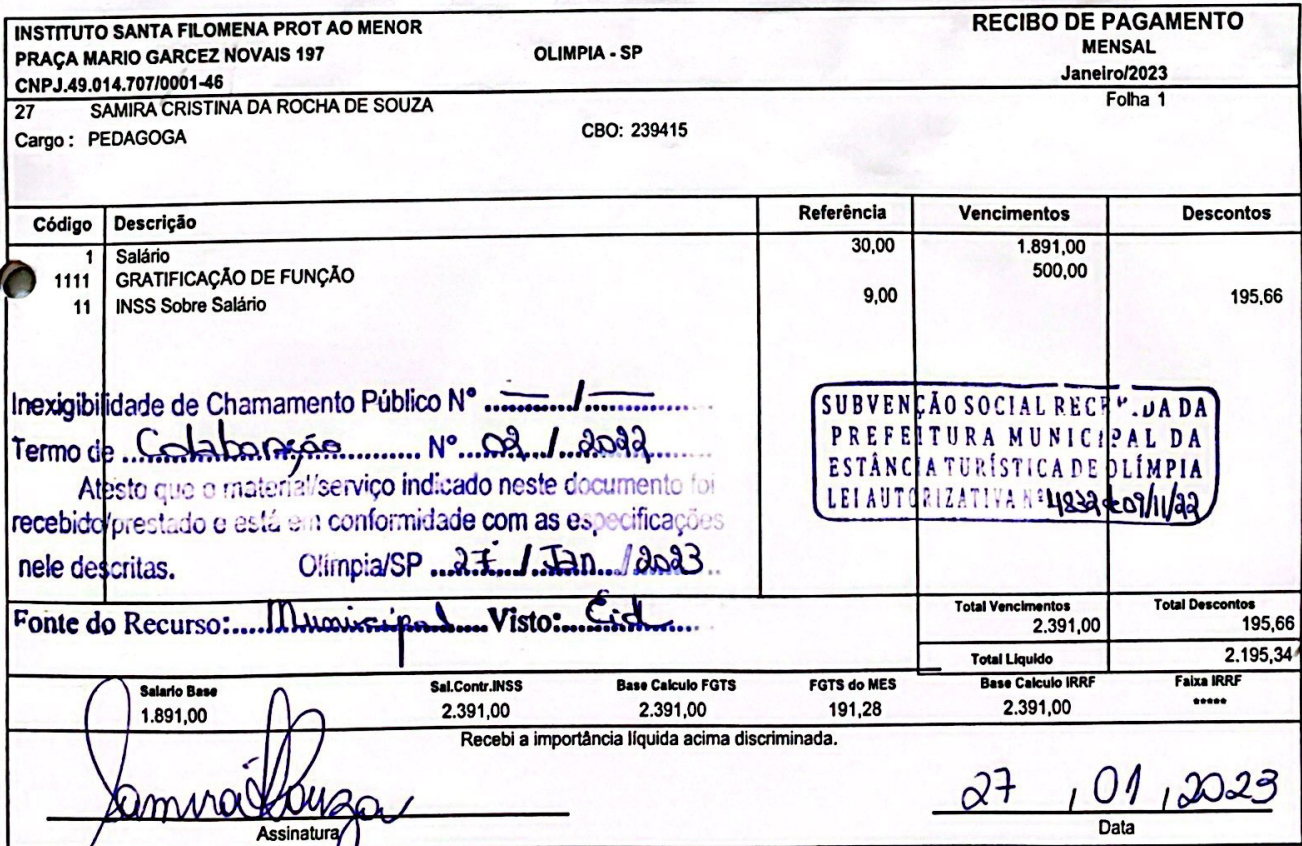 INSTITUTO SANTA FILOMENA PROT AO MENOR
PRAÇA MARIO GARCEZ NOVAIS 197 OLIMPIA - SP
CNPJ.49.014.707/0001-46
RECIBO DE PAGAMENTO
MENSAL
Janeiro/2023
27 SAMIRA CRISTINA DA ROCHA DE SOUZA Folha 1
Cargo : PEDAGOGA CBO: 239415
Código Descrição Referência Vencimentos Descontos
1 Salário 30,00 1.891,00
1111 GRATIFICAÇÃO DE FUNÇÃO 500,00
11 INSS Sobre Salário 9,00 195,66
Inexigibilidade de Chamamento Público Nº ....../......
Termo de Colaboração Nº 02 / 2022
Atesto que o material/serviço indicado neste documento foi
recebido/prestado e está em conformidade com as especificações
nele descritas. Olímpia/SP 27 / Jan / 2023
SUBVENÇÃO SOCIAL RECEBIDA DA
PREFEITURA MUNICIPAL DA
ESTÂNCIA TURÍSTICA DE OLÍMPIA
LEI AUTORIZATIVA Nº 4832 de 09/11/22
Fonte do Recurso: Municipal Visto: Cid
Total Vencimentos Total Descontos
2.391,00 195,66
Total Líquido 2.195,34
Salario Base Sal.Contr.INSS Base Calculo FGTS FGTS do MES Base Calculo IRRF Faixa IRRF
1.891,00 2.391,00 2.391,00 191,28 2.391,00 *****
Recebi a importância líquida acima discriminada.
Samira Souza 27 / 01 / 2023
Assinatura Data